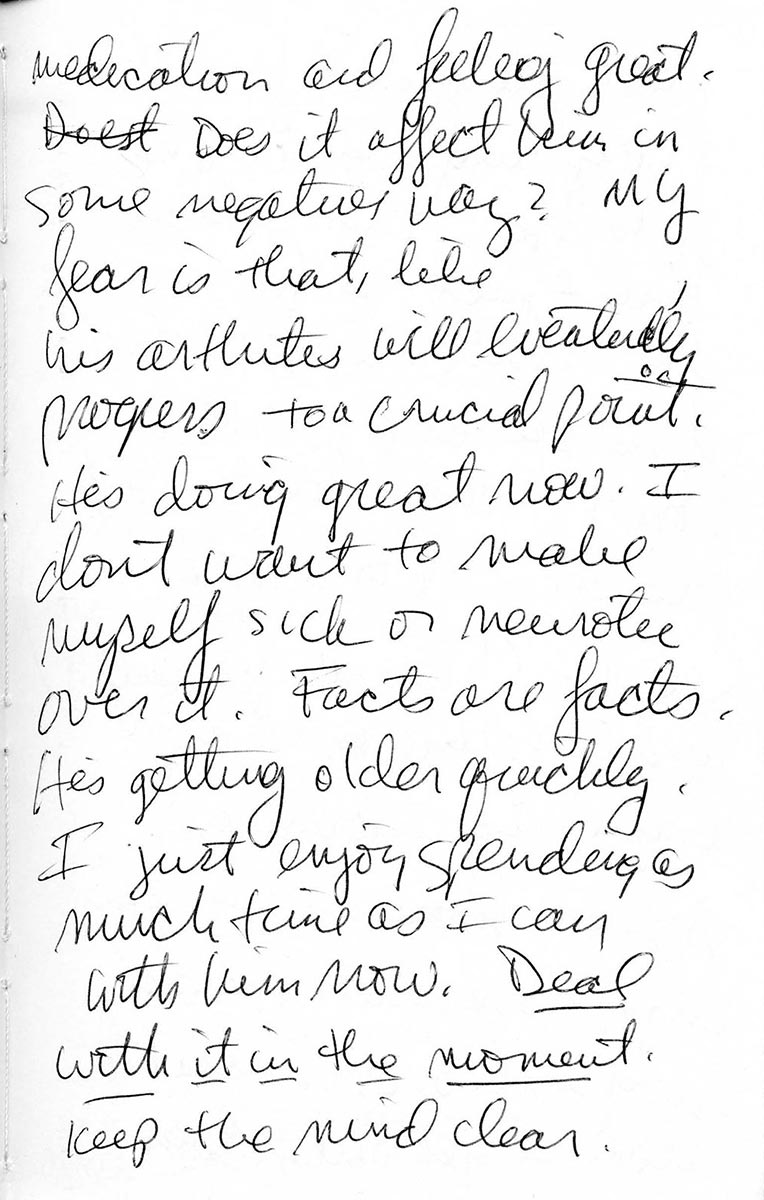 medication and feeling great.
Doest Does it affect him in
some negative way? My
fear is that, like
his arthrites will eventually
progress to a crucial point.
He's doing great now. I
don't want to make
myself sick or neurotic
over it. Facts are facts.
He's getting older quickly.
I just enjoy spending as
much time as I can
with him now. Deal
with it in the moment.
Keep the mind clear.